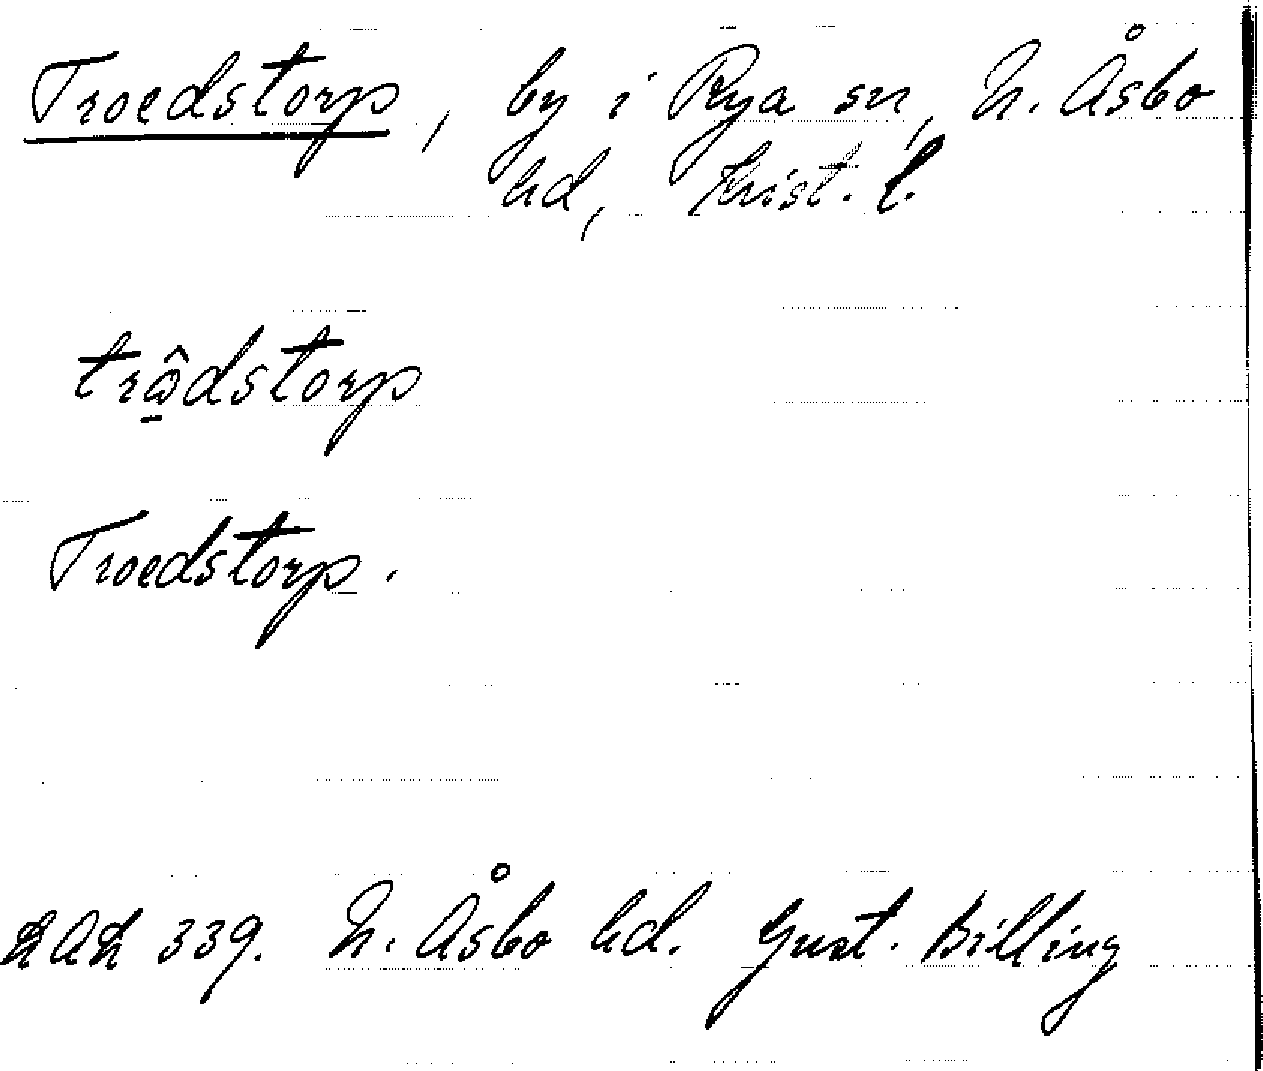 Troedstorp, by i Rya sn, N. Åsbo
hd, Krist. l.
trω̂dstorp
Troedstorp.
LAL 339. N. Åsbo hd. Gust. Billing